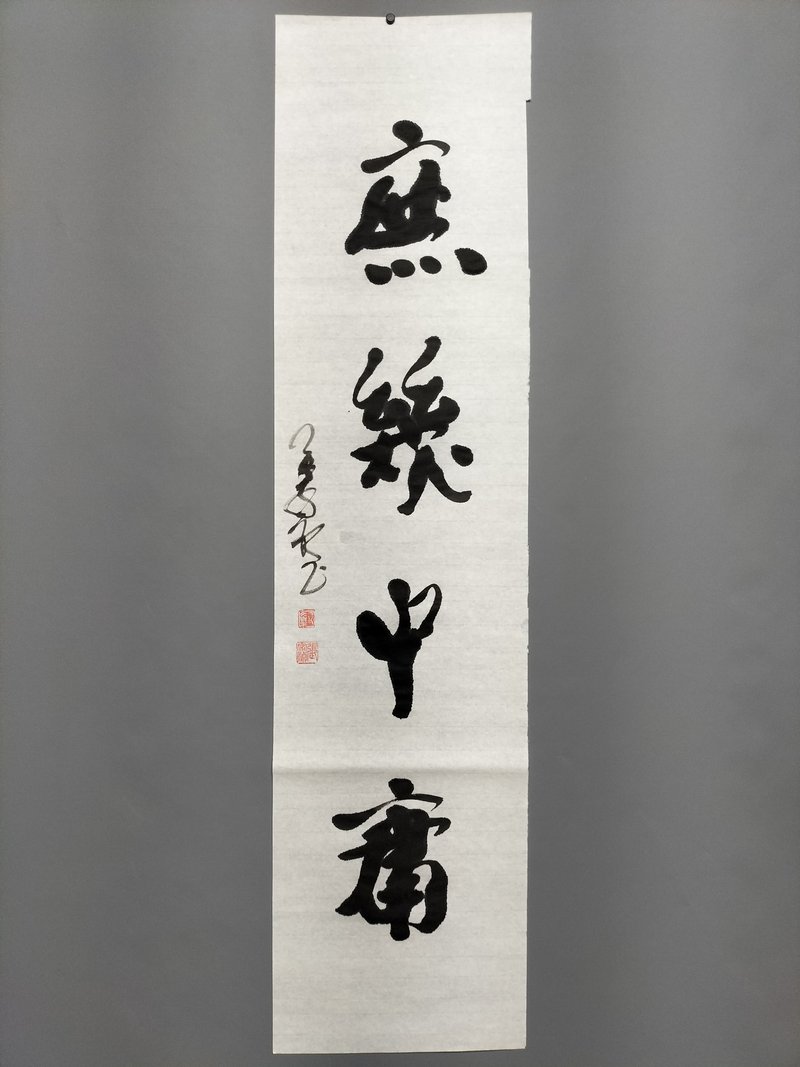 庶幾中庸